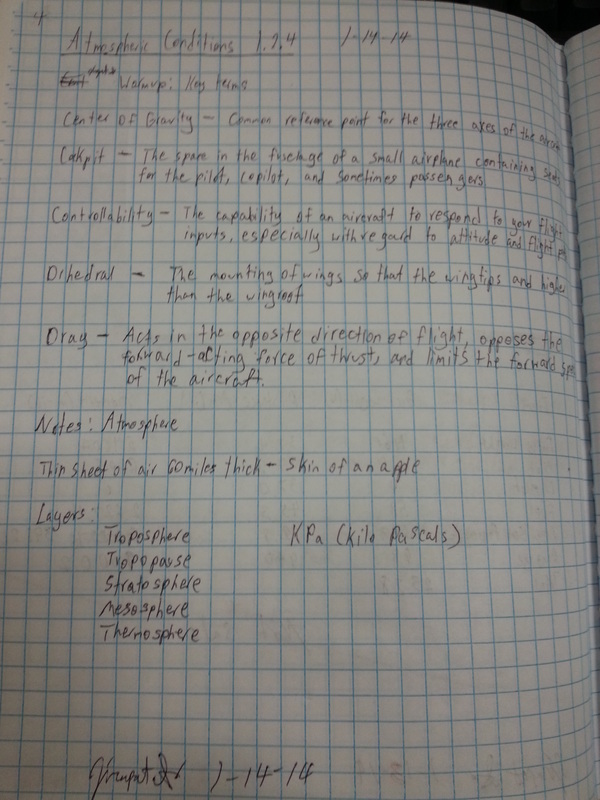 4
Atmospheric Conditions 1.2.4 1-14-14
Warmup: Key terms
Center of Gravity - Common reference point for the three axes of the
Cockpit - The spare in the fuselage of a small airplane containing
for the pilot, copilot, and sometimes passengers
Controllability - The capability of an aircraft to respond to your flight
inputs, especially with regard to attitude and flight
Dihedral - The mounting of wings so that the wingtips and higher
than the wingroot
Drag - Acts in the opposite direction of flight, opposes the
forward-acting force of thrust, and limits the forward
of the aircraft.
Notes: Atmosphere
Thin sheet of air 60 miles thick - skin of an apple
Layers:
Troposphere KPa (kilo Pascals)
Tropopause
Stratosphere
Mesosphere
Thermosphere
1-14-14